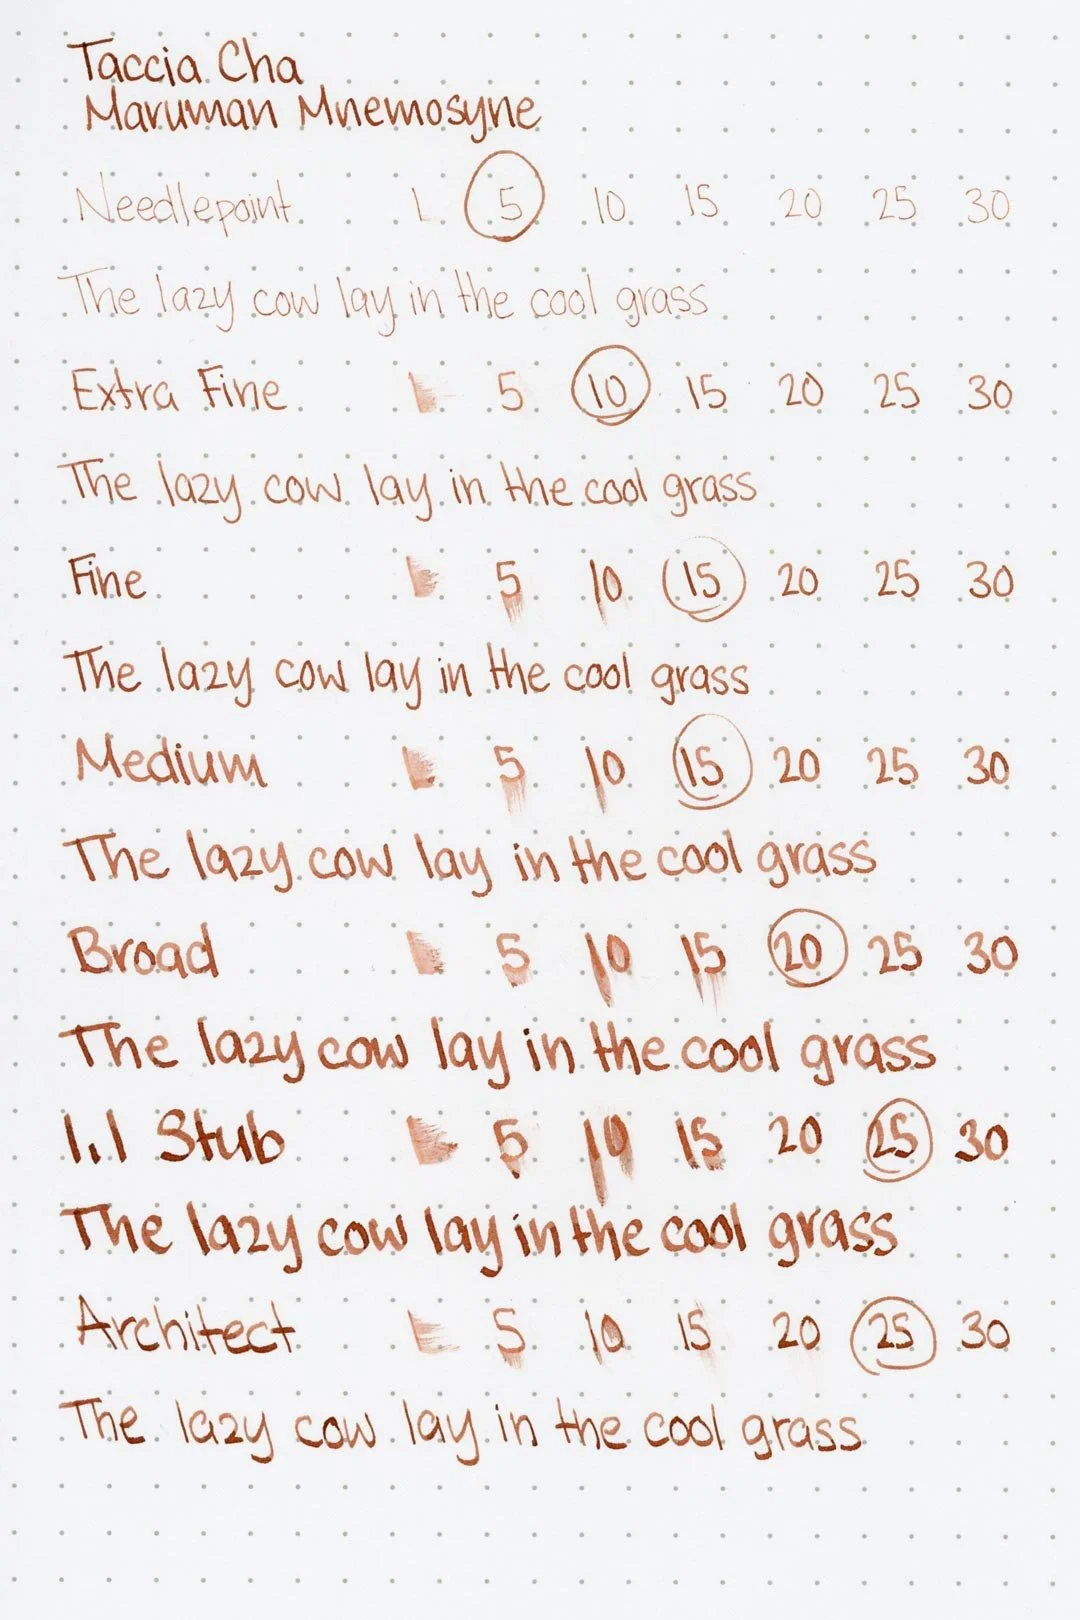 Taccia Cha
Maruman Mnemosyne
Needlepoint 1 5 10 15 20 25 30
The lazy cow lay in the cool grass
Extra Fine 1 5 10 15 20 25 30
The lazy cow lay in the cool grass
Fine 1 5 10 15 20 25 30
The lazy cow lay in the cool grass
Medium 1 5 10 15 20 25 30
The lazy cow lay in the cool grass
Broad 1 5 10 15 20 25 30
The lazy cow lay in the cool grass
1.1 Stub 1 5 10 15 20 25 30
The lazy cow lay in the cool grass
Architect 1 5 10 15 20 25 30
The lazy cow lay in the cool grass